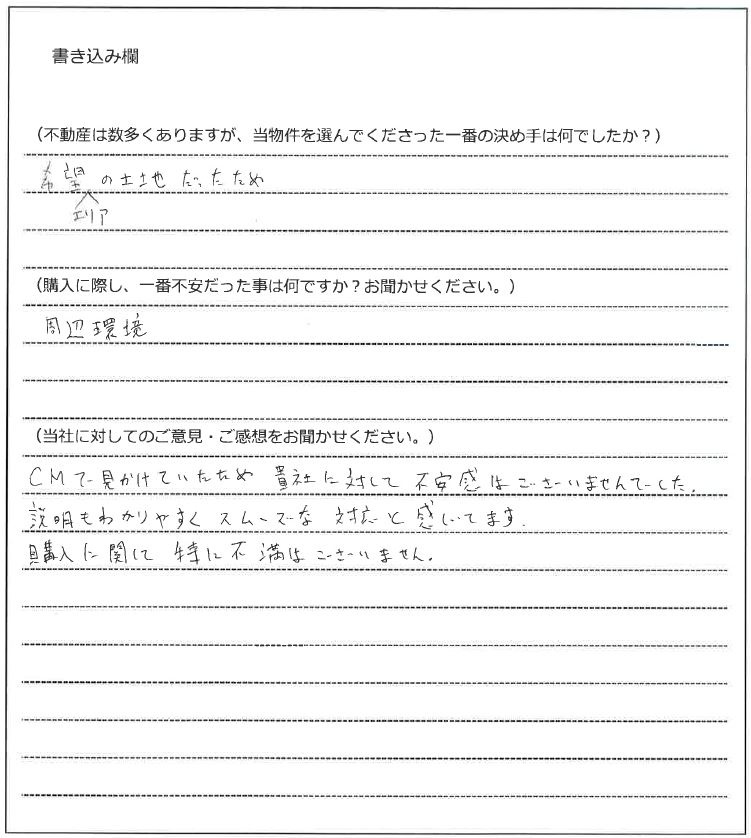 書き込み欄
（不動産は数多くありますが、当物件を選んでくださった一番の決め手は何でしたか？）
希望の土地だったため
エリア
（購入に際し、一番不安だった事は何ですか？お聞かせください。）
周辺環境
（当社に対してのご意見・ご感想をお聞かせください。）
CMで見かけていたため 貴社に対して 不安感はございませんでした。
説明もわかりやすく スムーズな 対応と感じてます。
購入に関して 特に不満はございません。